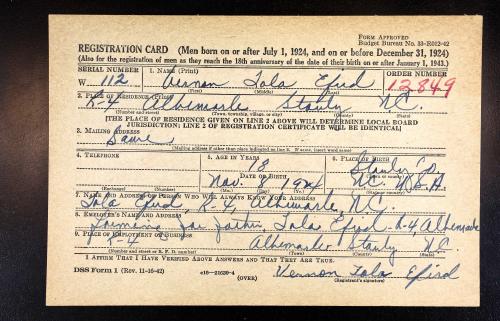 FORM APPROVED
Budget Bureau No. 33-R012-42
REGISTRATION CARD (Men born on or after July 1, 1924, and on or before December 31, 1924)
(Also for the registration of men as they reach the 18th anniversary of the date of their birth on or after January 1, 1943.)
SERIAL NUMBER 1. NAME (Print) ORDER NUMBER
W 112 Vernon Tola Efird 12849
(First) (Middle) (Last)
2. PLACE OF RESIDENCE (Print)
R-4 Albemarle Stanly N.C.
(Number and street) (Town, township, village, or city) (County) (State)
[THE PLACE OF RESIDENCE GIVEN ON LINE 2 ABOVE WILL DETERMINE LOCAL BOARD
JURISDICTION; LINE 2 OF REGISTRATION CERTIFICATE WILL BE IDENTICAL]
3. MAILING ADDRESS
Same
[Mailing address if other than place indicated on line 2. If same, insert word same]
4. TELEPHONE 5. AGE IN YEARS 6. PLACE OF BIRTH
18 Stanly Co.
DATE OF BIRTH (Town or county)
Nov. 8 1924 N.C. U.S.A.
(Exchange) (Number) (Mo.) (Day) (Yr.) (State or country)
7. NAME AND ADDRESS OF PERSON WHO WILL ALWAYS KNOW YOUR ADDRESS
Tola Efird, R-4, Albemarle, N.C.
8. EMPLOYER'S NAME AND ADDRESS
Farming for father Tola Efird R-4, Albemarle
9. PLACE OF EMPLOYMENT OR BUSINESS
R-4 Albemarle Stanly N.C.
(Number and street or R. F. D. number) (Town) (County) (State)
I AFFIRM THAT I HAVE VERIFIED ABOVE ANSWERS AND THAT THEY ARE TRUE.
DSS Form 1 (Rev. 11-16-42) 16-21630-4 Vernon Tola Efird
(OVER) (Registrant's signature)